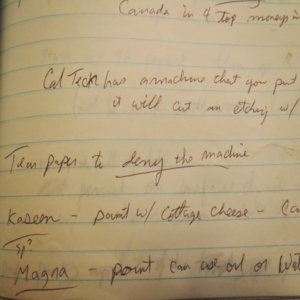 Canada in 4 top money in
Cal Tech has a machine that you put
it will cut an etching w/
Tear paper to deny the machine
Kaseen - paint w/ Cottage cheese -
sp?
Magna - paint can use oil or